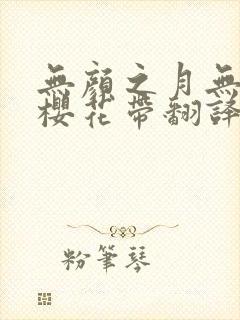 無顏之月無
櫻花帶翻譯
粉筆琴